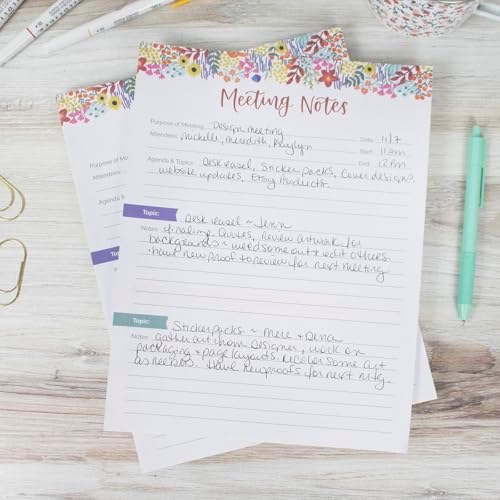 Meeting Notes
Purpose of Meeting: Design meeting Date: 11/7
Attendees: Michelle, Meredith, Kaylyn Start: 11am
Agenda & Topics: Desk easel, Sticker packs, Cover designs, End: 12pm
website updates, Etsy Products.
Topic: Desk easel ~ Jenn
Notes: finalize Quotes, Review artwork for
backgrounds ~ need some art + edit others.
· have new proof to review for next meeting
Topic: Sticker packs ~ Mere + Dena
Notes: gather art from Designer, work on
packaging + page layouts. Recolor some art
as needed. Have new proofs for next mtg.
Purpose of Meeting:
Attendees
Agenda &